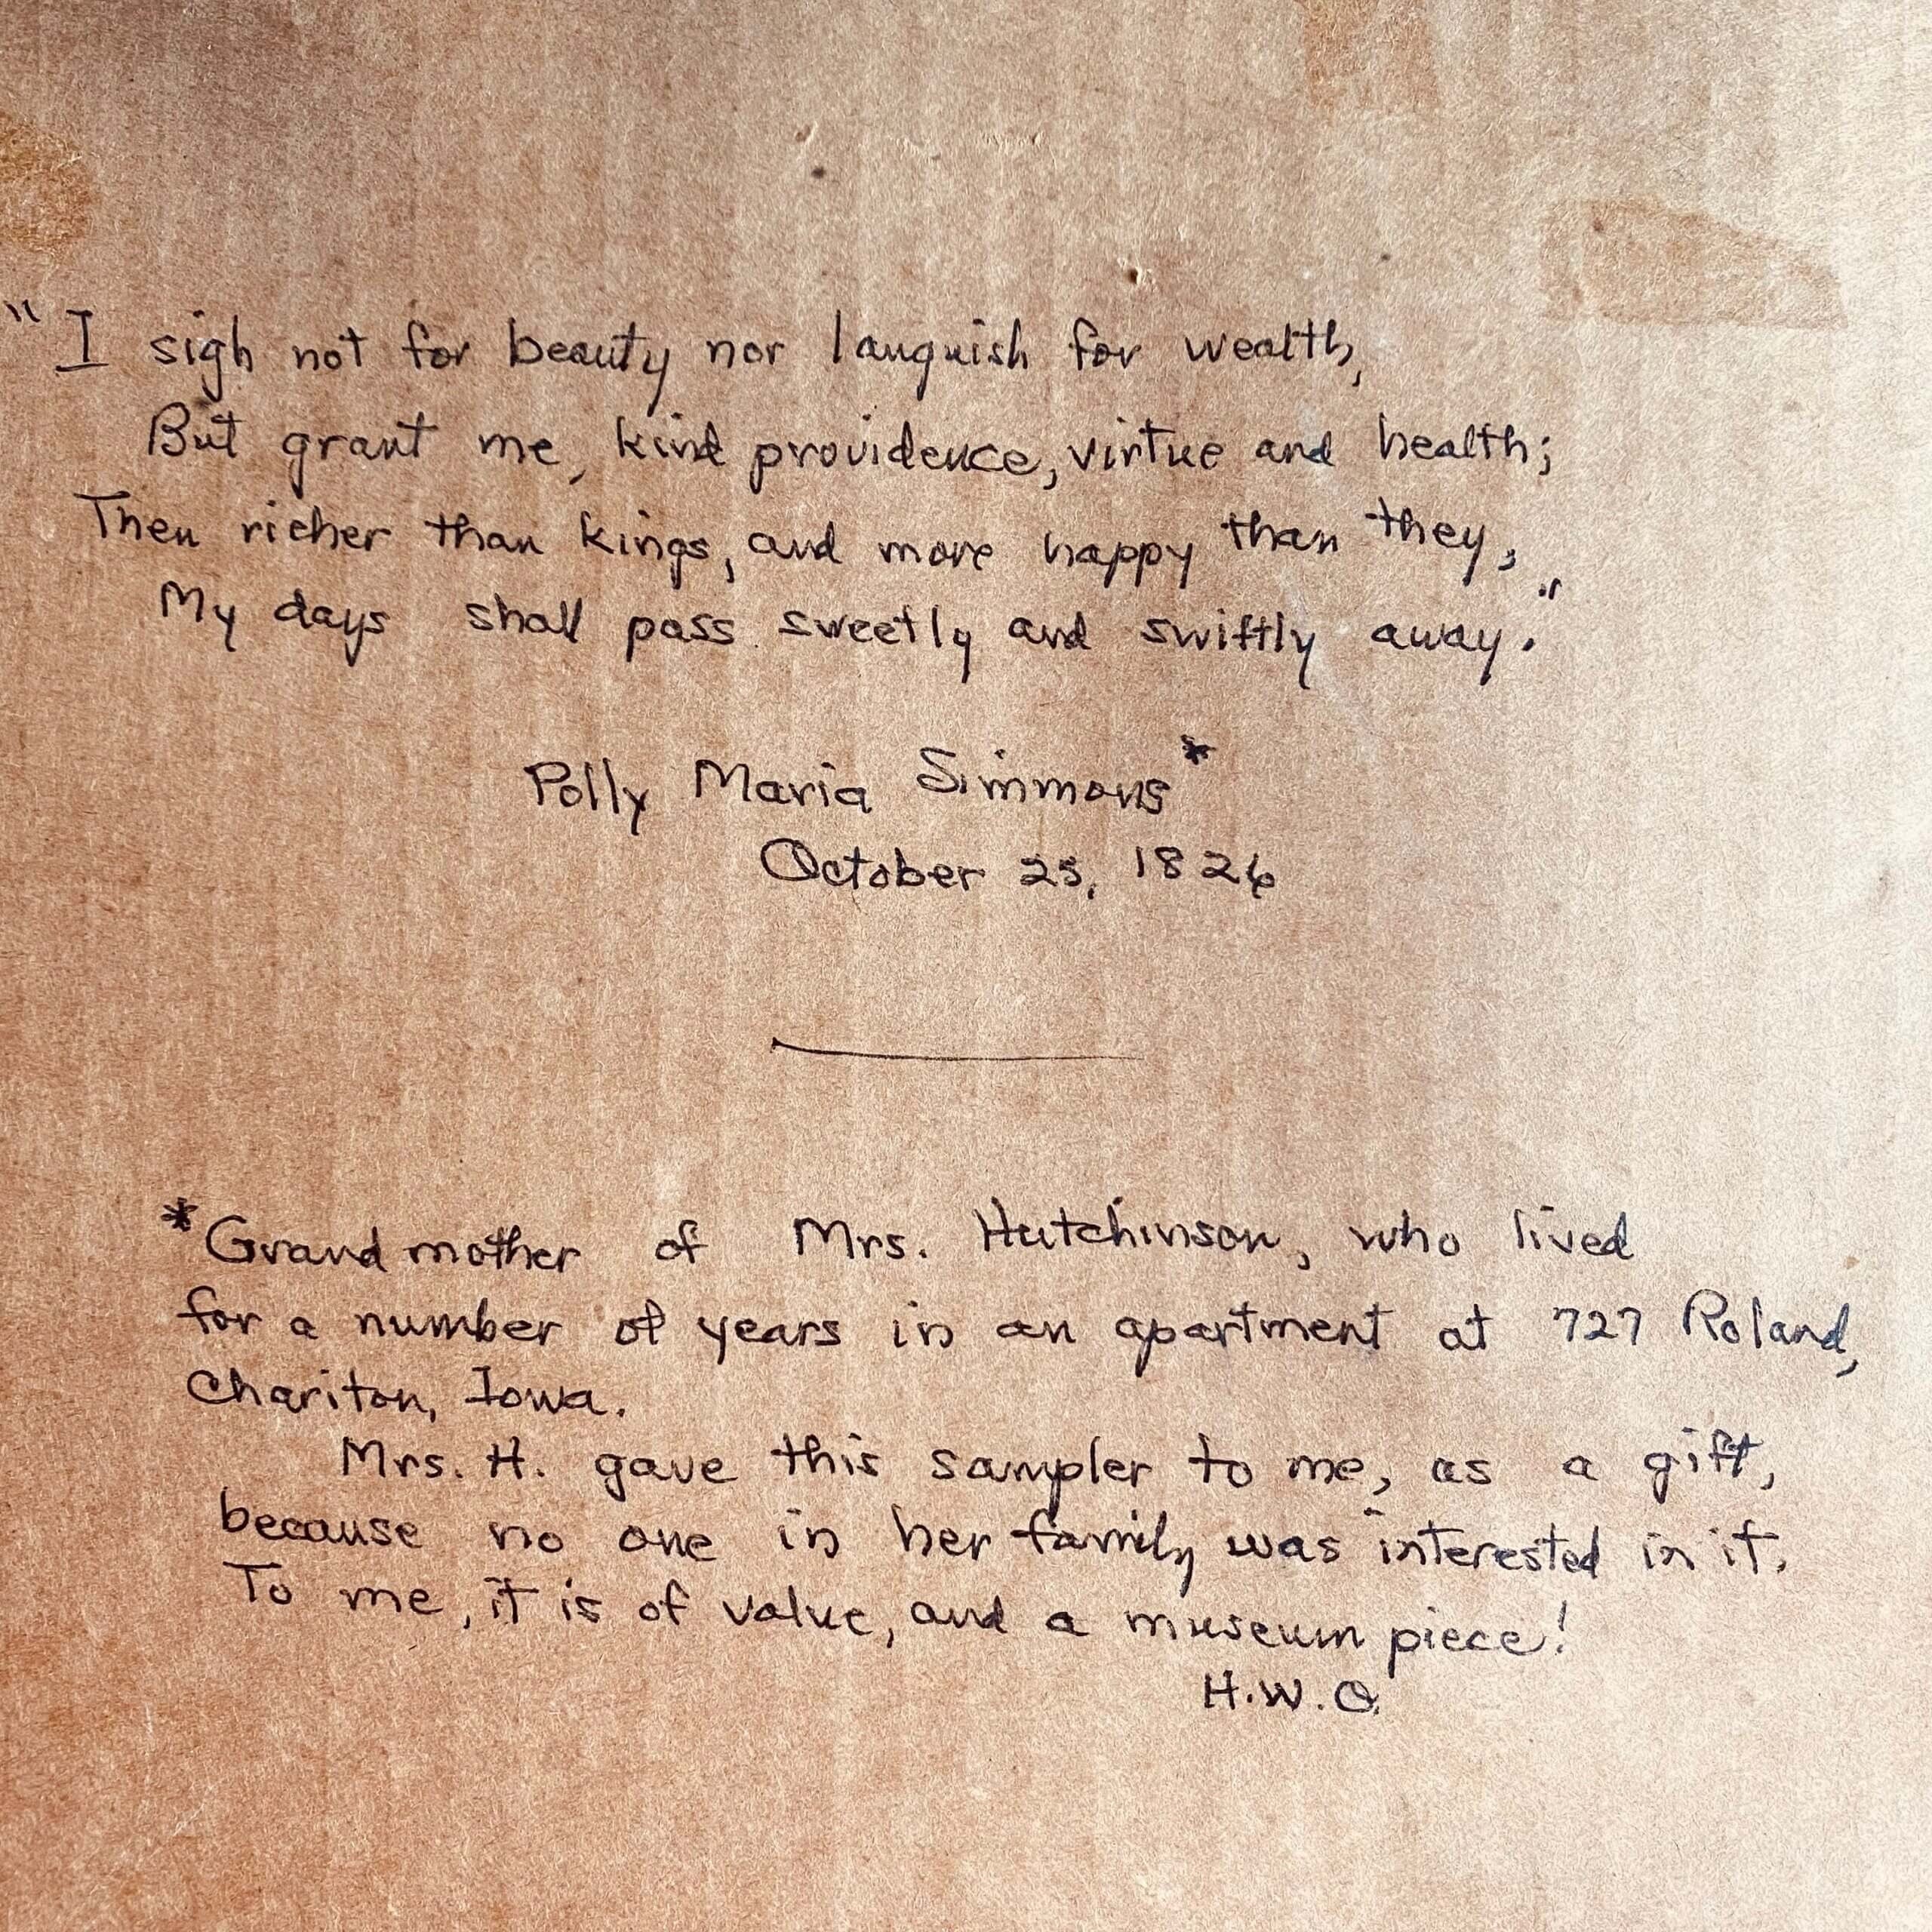 "I sigh not for beauty nor languish for wealth,
But grant me, kind providence, virtue and health;
Then richer than kings, and more happy than they,
My days shall pass sweetly and swiftly away."
Polly Maria Simmons*
October 25, 1826
*Grandmother of Mrs. Hutchinson, who lived
for a number of years in an apartment at 727 Roland,
Chariton, Iowa.
Mrs. H. gave this sampler to me, as a gift,
because no one in her family was interested in it.
To me, it is of value, and a museum piece!
H.W.O.